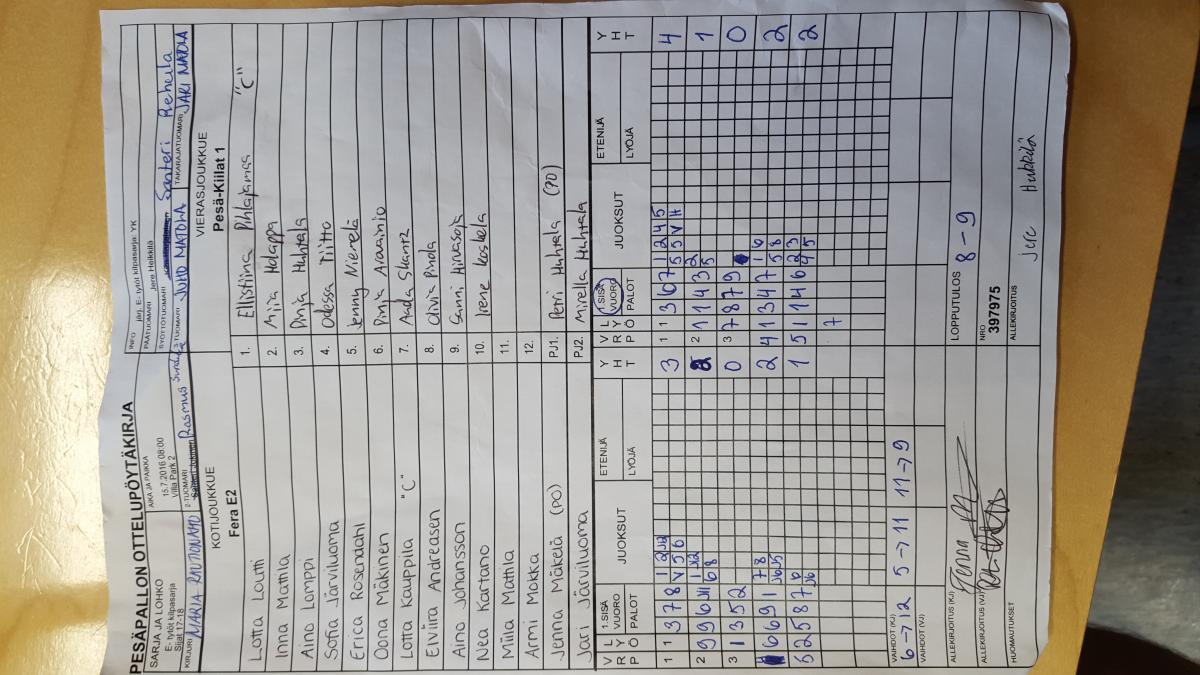 PESÄPALLON OTTELUPÖYTÄKIRJA
SARJA JA LOHKO
E- tytöt kilpasarja
Sijat 17-18
AIKA JA PAIKKA
15.7.2016 08:00
Villa Park 2
INFO
järj. E- tytöt kilpasarja: YK
PÄÄTUOMARI
Jere Heikkilä
KIRJURI
MARIA RAUTIONAHO
2-TUOMARI
Rasmus
SYÖTTÖTUOMARI
Santeri Rehula
3-TUOMARI
JUHO MATOLA
TAKARAJATUOMARI
JARI MATOLA
KOTIJOUKKUE
Fera E2
VIERASJOUKKUE
Pesä-Kiillat 1
Lotta Loutti 1. Ellistiina Pihlajamaa "C"
Inna Mattila 2. Miia Holappa
Aino Lamppi 3. Pinja Huhtala
Sofia Järviluoma 4. Odessa Tiitto
Erica Rosendahl 5. Jenny Niemelä
Oona Mäkinen 6. Pinja Aravainio
Lotta Kauppila "C" 7. Aada Skantz
Elviira Andreasen 8. Olivia Pinola
Aino Johansson 9. Sanni Hirvasoja
Nea Kartano 10. Irene Koskela
Miila Mattila 11.
Armi Mokka 12.
Jenna Mäkelä (PO) PJ1. Petri Huhtala (PO)
Jari Järviluoma PJ2. Mirella Huhtala
VRP LYÖ 1.SISÄVUORO PALOT JUOKSUT ETENIJÄ LYÖJÄ YHT
VRP LYÖ 1.SISÄVUORO PALOT JUOKSUT ETENIJÄ LYÖJÄ YHT
1 1 3 7 8 3
1 1 3 6 7 1 2 4 5 4
5 5 V H
2 9 9 6
2 1 1 4 3 2 1
5
3 1 3 5 2 0
3 7 8 7 9 0
6 6 9 1 7 8 2
4 1 3 4 7 1 6 2
5 8
5 2 5 8 7 1
5 1 1 4 6 2 3 2
4 5
7
VAIHDOT (KJ)
6->12 5->11 11->9
VAIHDOT (VJ)
LOPPUTULOS
8 - 9
ALLEKIRJOITUS (KJ)
NRO
397975
ALLEKIRJOITUS (VJ)
ALLEKIRJOITUS
HUOMAUTUKSET
Jere Hukkila